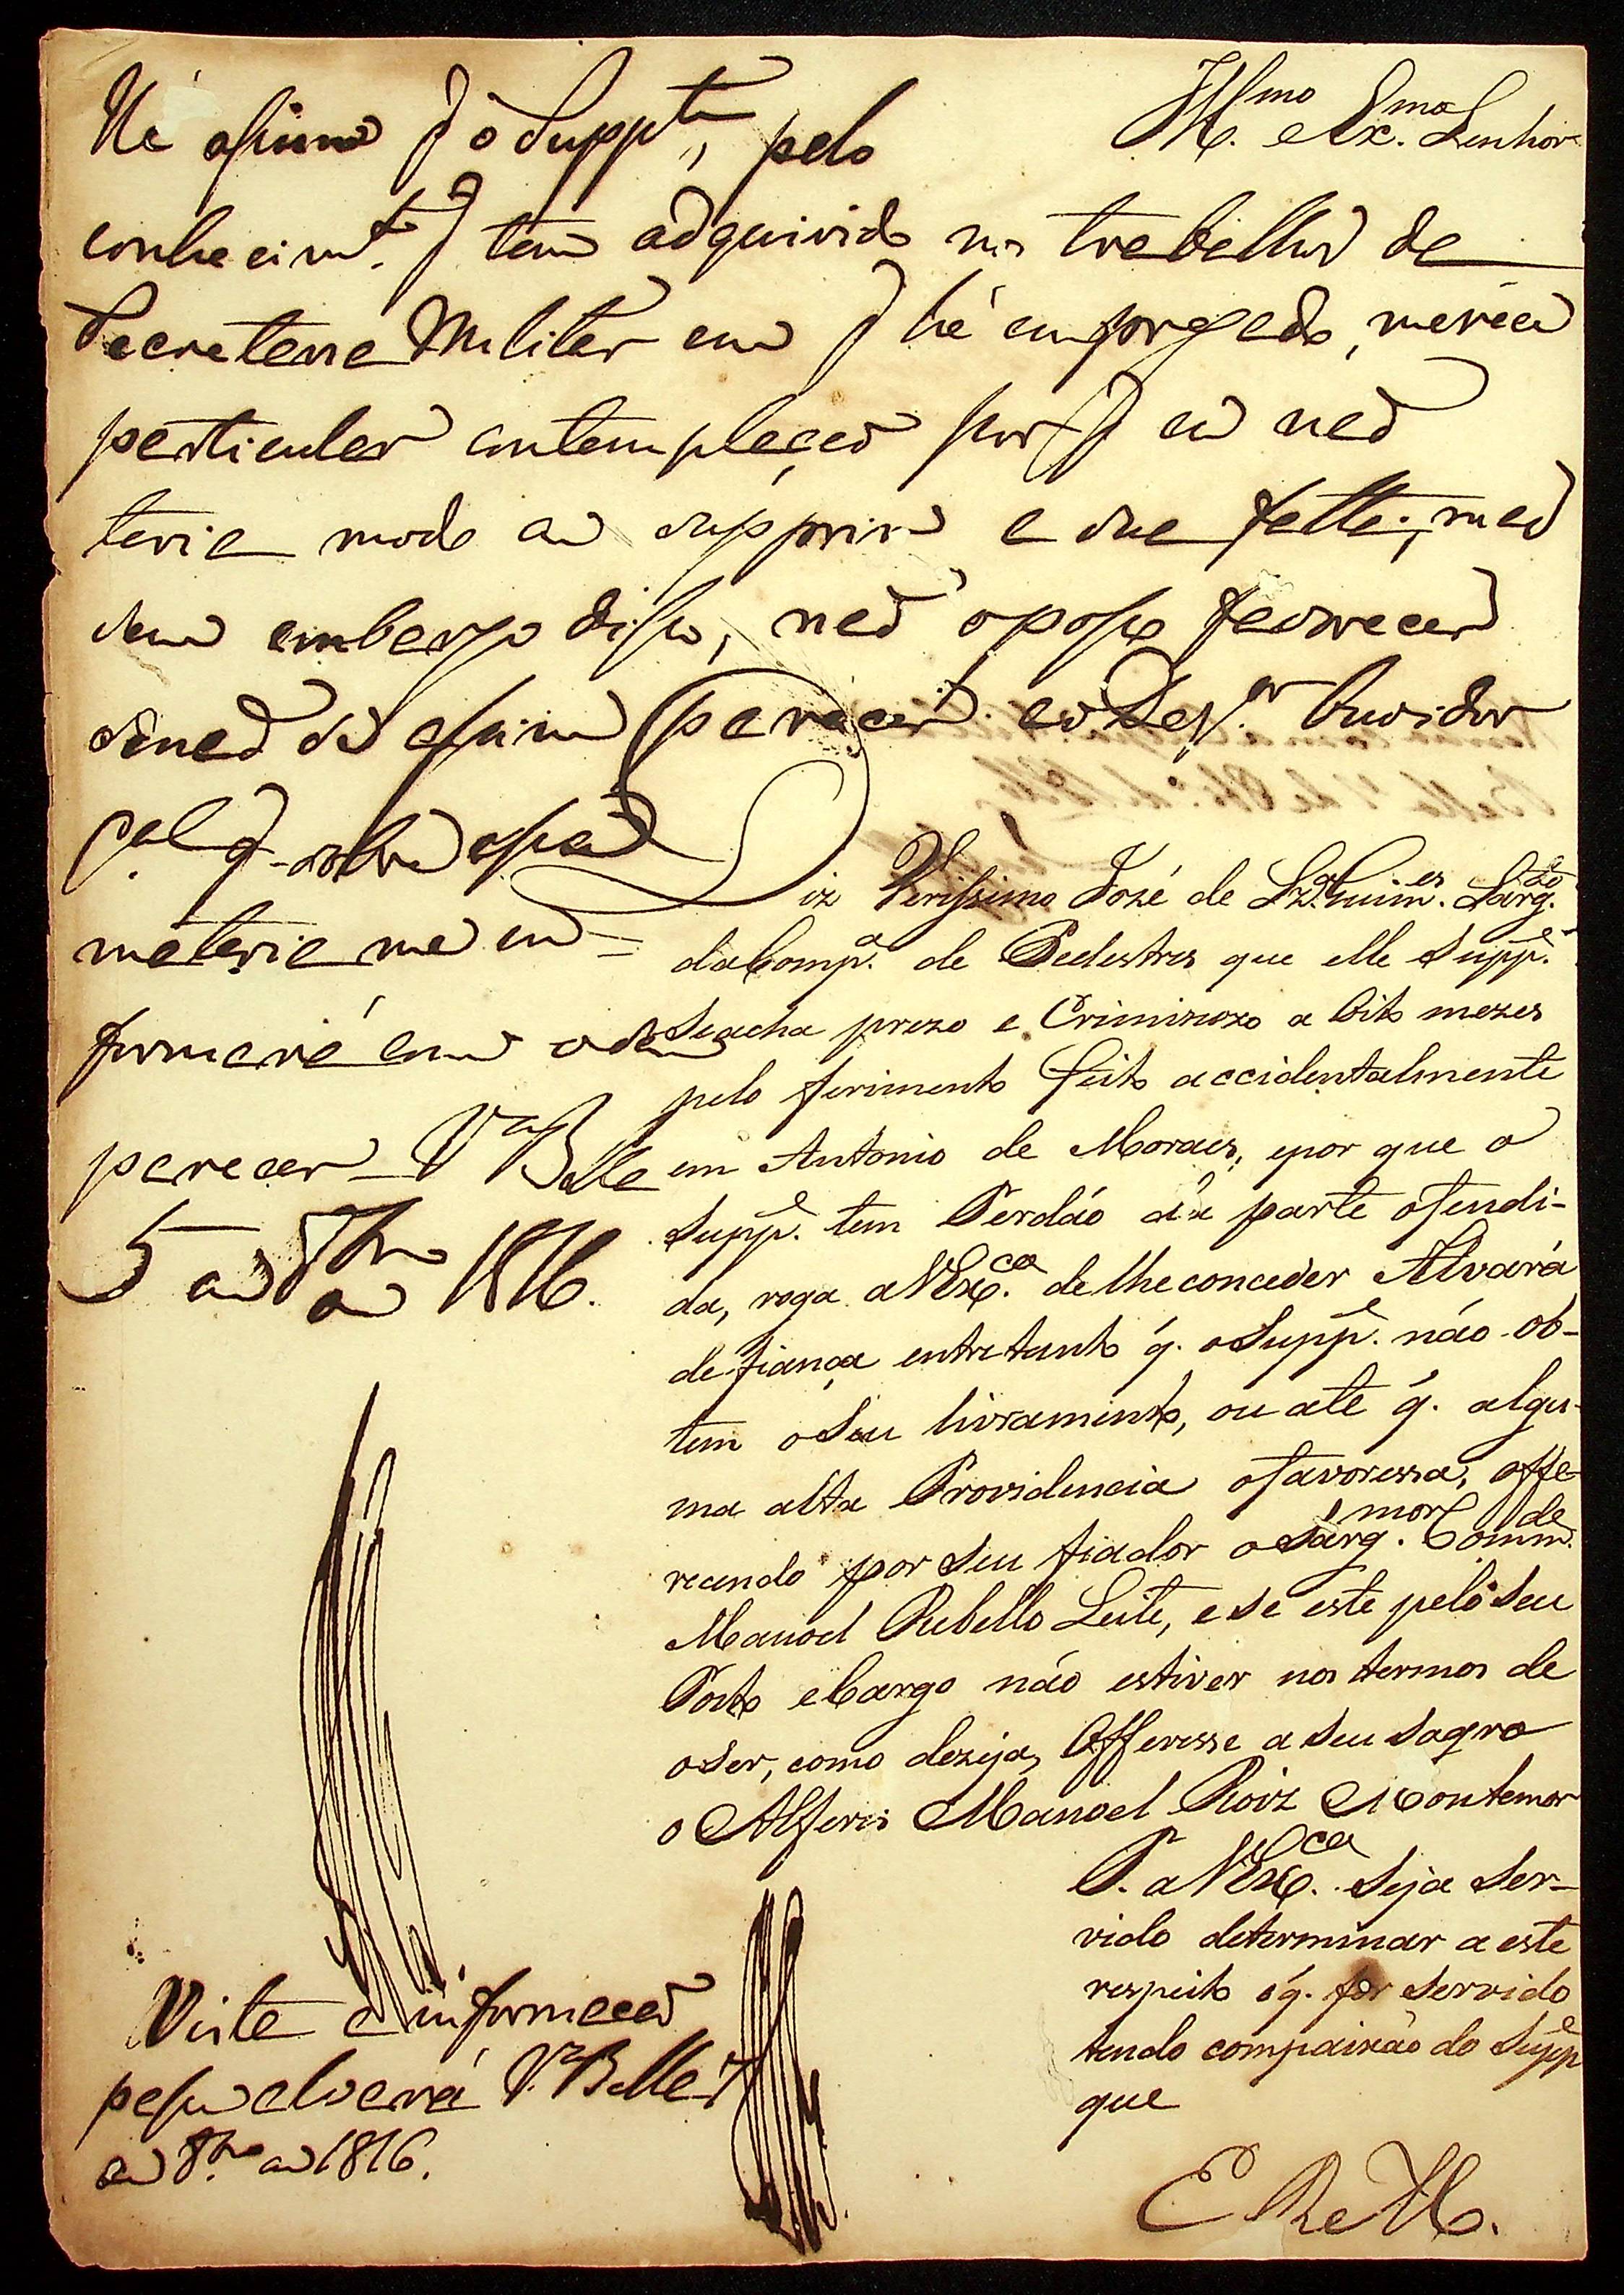 Illmo. e Exmo. Senhor
Hé assim q̃ o Suppte, pelo
conhecimto. q̃ tem adquirido nos trabalhos da
Secretaria Militar em q̃ hé empregado, merece
particular contemplaçaõ por q̃ eu naõ
teria modo de supprir a sua falta; mas
sem embargo disso, naõ o posso favorecer
senaõ se assim parecer ao Dezor. Ouvidor
Gal. q̃ sobre esta
materia me in=
formará com o seu
parecer Va Bella
5 de 8bro de 1816.
Diz Verissimo José de Sza. Guimes. Sargto.
da Compa. de Pedestres que elle Suppe.
se acha prezo e Criminozo a Oito mezes
pelo ferimento feito accidentalmente
em Antonio de Moraes, epor que o
Suppe. tem Perdáo da parte ofendi-
da, roga a V Exca. de lhe conceder Alvará
de fiança entretanto q̃. o Suppe. náo ob-
tem o Seu livramento, ou ate q̃. algu-
ma alta Providencia o favoressa, offe-
recendo por Seu fiador o Sarg. mor Commde.
Manoel Rebello Leite, e se este pelo Seu
Posto e Cargo náo estiver nos termos de
o Ser, como dezeja, Offeresse a Seu Sogro
o Alferes Manoel Roiz Montemor
P. a V Exca. Seja Ser-
vido determinar a este
respeito o q̃. for Servido
tendo compaixáo do Suppe
que
E R e Mce.
Vista a informaçaõ
passe Alvará Va. Bella 7
de 8bro de 1816.